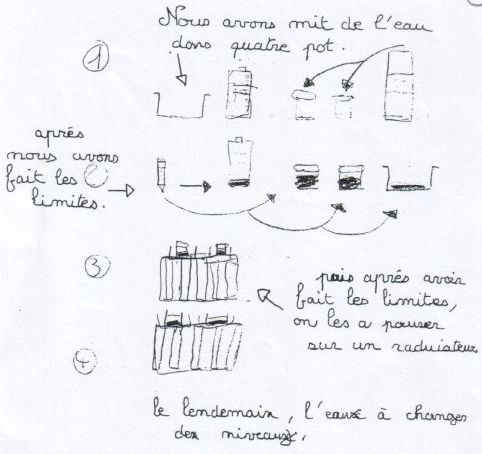 Nous avons mit de l'eau
dans quatre pot.
①
après
nous avons
fait les ②
limites.
③
puis après avoir
fait les limites,
on les a pauser
sur un raduiateur
④
le lendemain, l'eaux à changer
den niveaux.